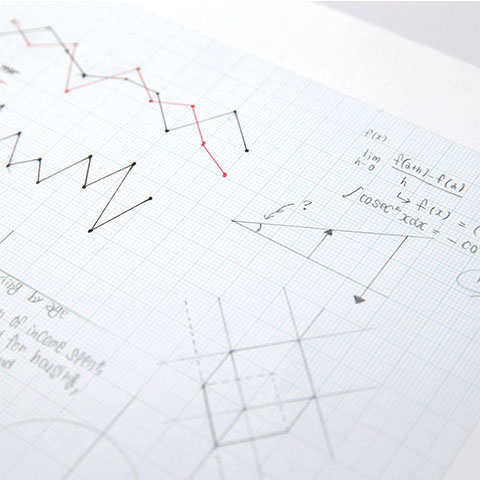 f(x)
lim f(a+h)-f(a)
h→0 h
↳ f(x) = (
∫cosec²xdx = - co
?
by age
of income spent
for housing,